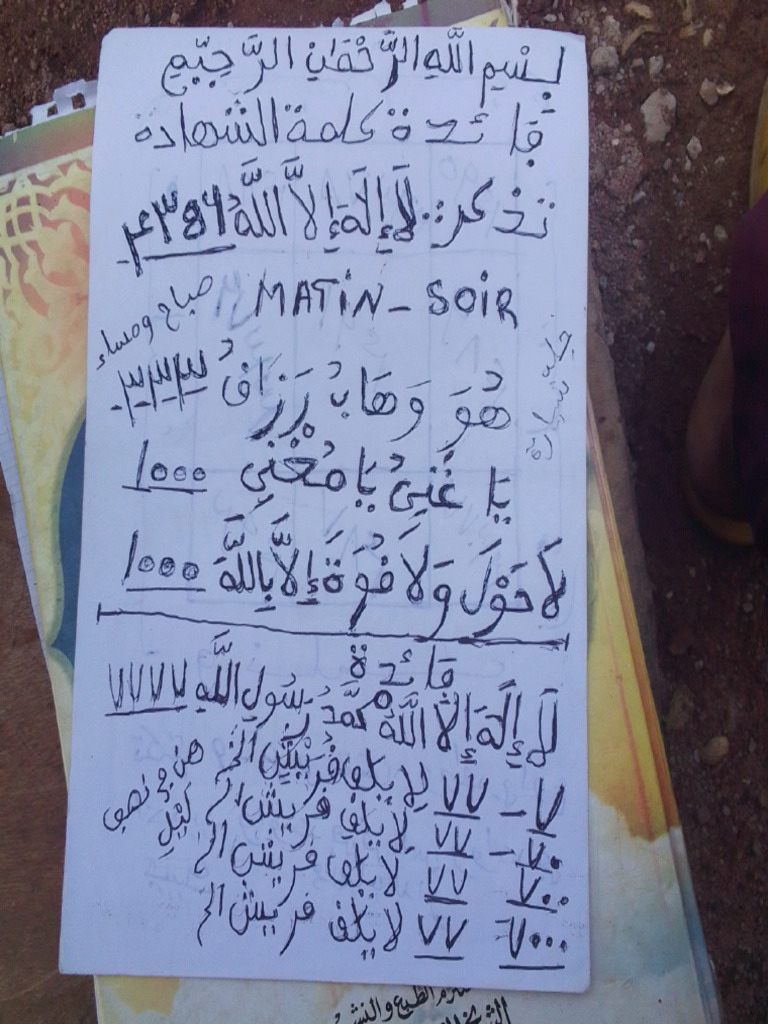 بِسْمِ اللَّهِ الرَّحْمَٰنِ الرَّحِيمِ
فَائدة كلمة الشهادة
تذكر: لَا إِلَهَ إِلاَّ اللَّهُ
صباح ومساء
MATiN - SOiR
هُوَ وَهَابُ رَزَاقُ ٣٣٣
يَا غَنِيُ يَا مُغْنِي ١٠٠٠
لَا حَوْلَ وَلَا قُوَةَ إِلاَّ بِاللَّهِ ١٠٠٠
فائدة
لَا إِلَهَ إِلاَّ اللَّهُ مُحَمَّدُ رَسُولِ اللَّهِ ٧٧٧٧
٧ - ٧٧ لِإيلفِ قُرَيْشٍ الخ
٧٠ - ٧٧ لِإيلفِ قريش الخ
٧٠٠ ٧٧ لايلف قريش الخ
٧٠٠٠ ٧٧ لايلف قريش الخ